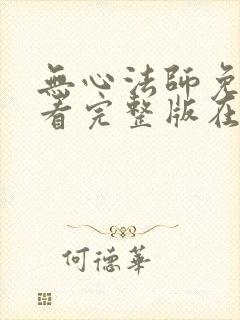 無心法師免
看完整版在
何德華